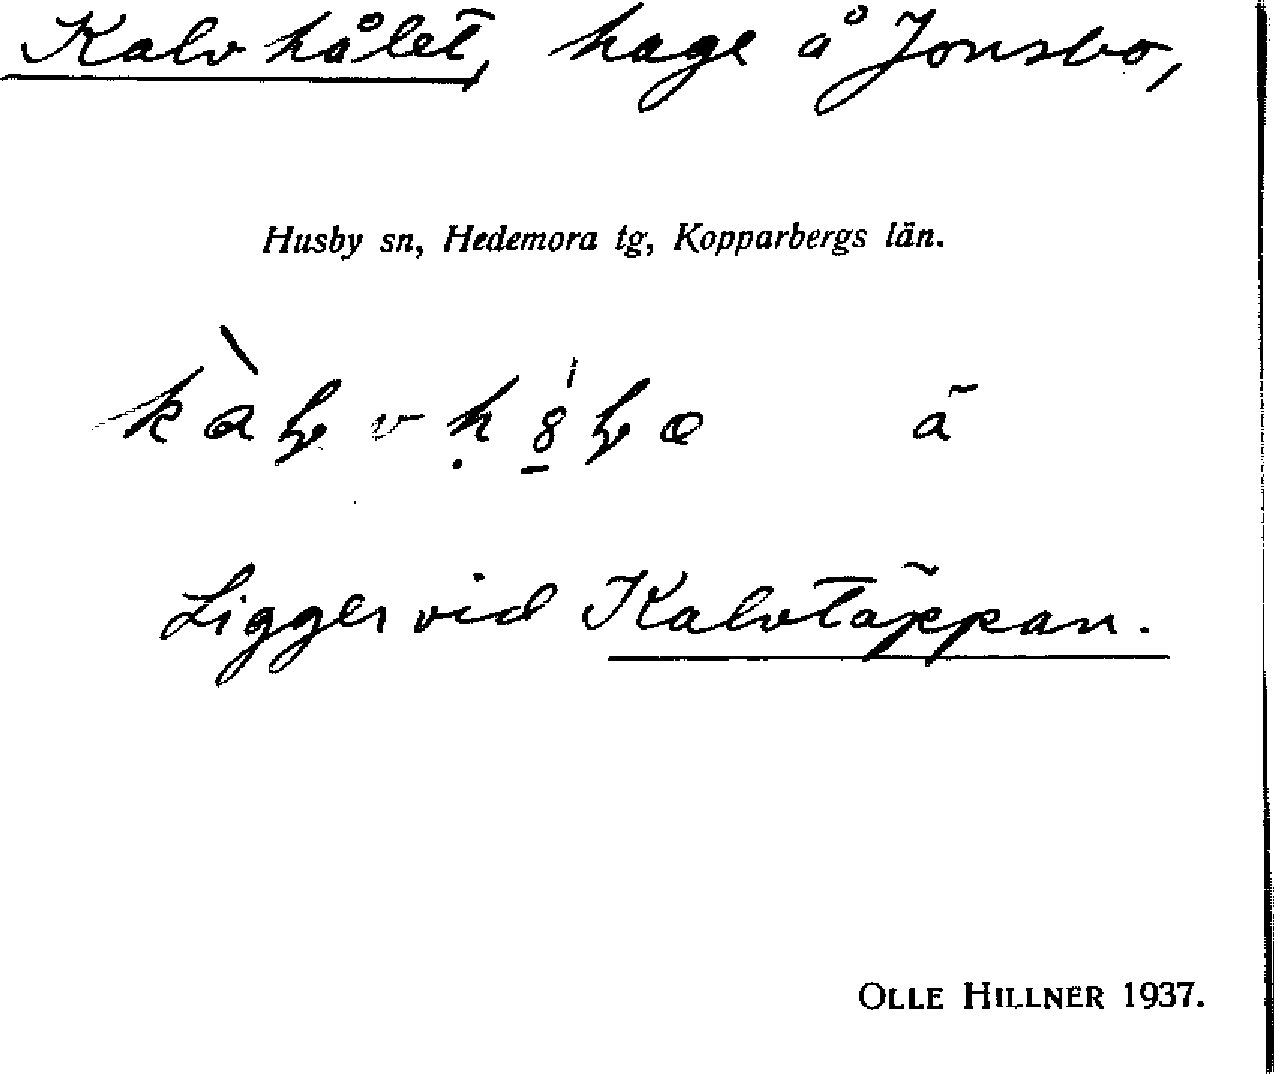 Kalvhålet, hage å Jonsbo,
Husby sn, Hedemora tg, Kopparbergs län.
Ligger vid Kalvtäppan.
OLLE HILLNER 1937.